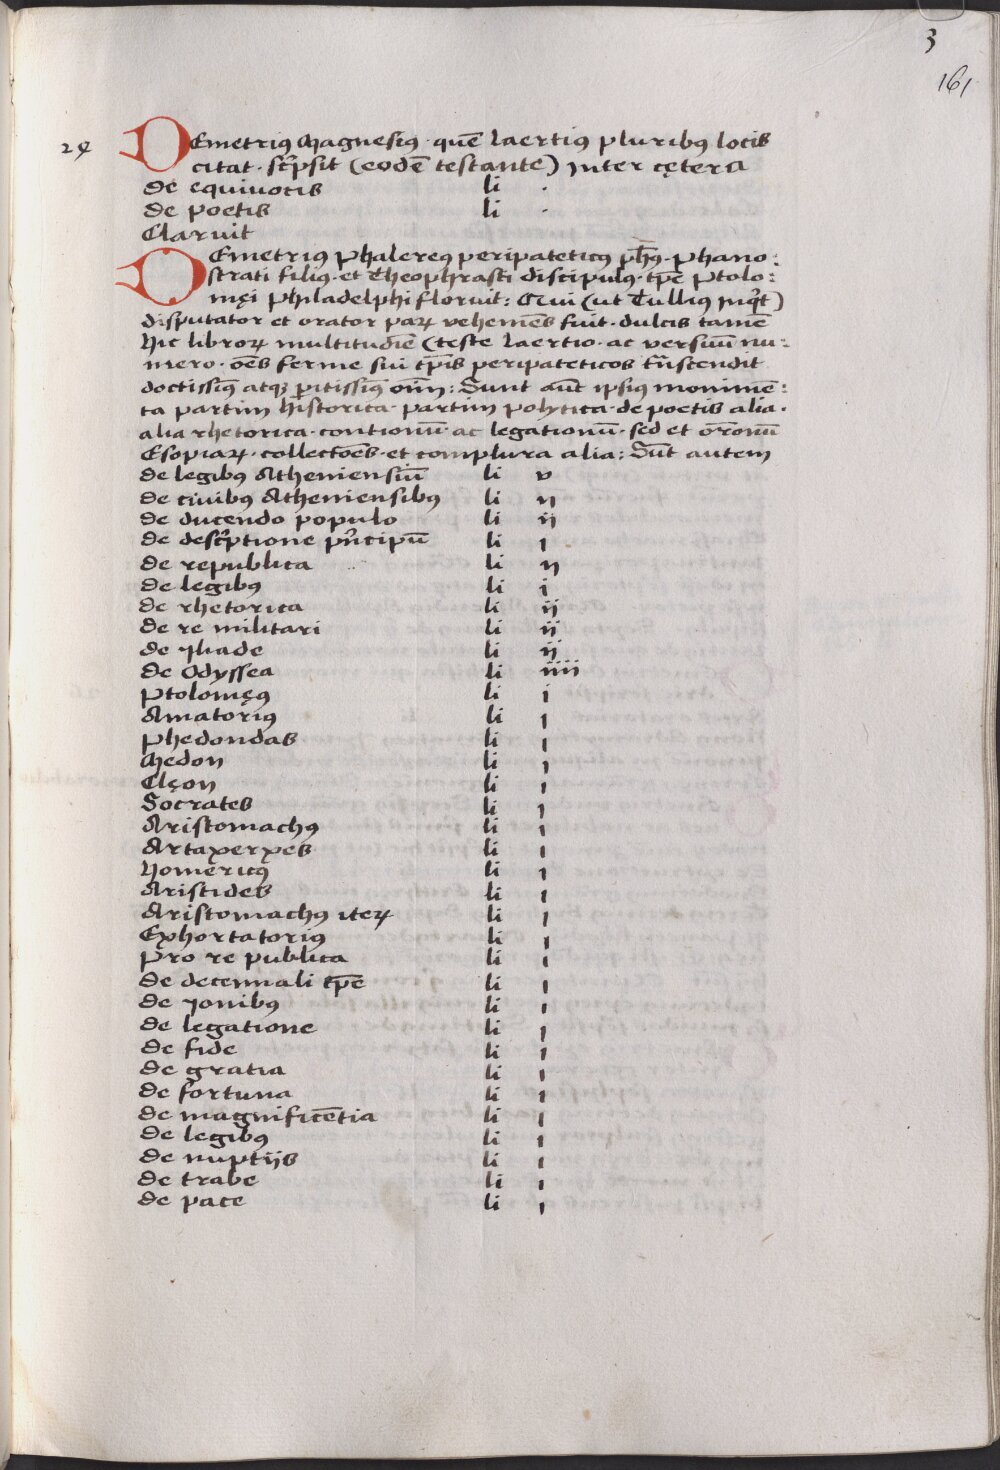 3
161
24
DEmetriꝰ Magnesiꝰ · quē Laertiꝰ pluribꝰ locis
citat · sc̃psit (eodē testante) inter cętera
de equivocis li ·
de poetis li ·
Claruit
DEmetriꝰ Phalereꝰ peripateticꝰ ph̃ꝰ · phano:
strati filiꝰ · et Theophrasti discipulꝰ · tp̄e Ptolo:
męi Philadelphi floruit: Qui (ut Tulliꝰ inq̃t)
disputator et orator parꝝ vehemēs fuit · dulcis tamē
Hic libroꝝ multitudīe (teste Laertio · ac versuū nu:
mero · oēs ferme sui tp̄is peripateticos tn̄scendit
doctissimꝰ atqꝫ p̱itissimꝰ oīm: Sunt aūt ipsiꝰ monimē:
ta partim historica · partim polytica · de poetis alia ·
alia rhetorica · contionū · ac legationū · sed et or̄onū
Esopiaꝝ · collectōes · et complura alia: Sūt autem
de legibꝰ Atheniensiū li v
de civibꝰ Atheniensibꝰ li ij
de ducendo populo li ij
de desc̃ptione pn̄cipū li j
de republica li ij
de legibꝰ li j
de rhetorica li ij
de re militari li ij
de Iliade li ij
de Odyssea li iiij
Ptolomęꝰ li j
Amatoriꝰ li j
Phedondas li j
Medon li j
Clęon li j
Socrates li j
Aristomachꝰ li j
Artaxerxes li j
Homericꝰ li j
Aristides li j
Aristomachꝰ iteꝝ li j
Exhortatoriꝰ li j
Pro re publica li j
de decennali tp̄e li j
de Ionibꝰ li j
de legatione li j
de fide li j
de gratia li j
de fortuna li j
de magnificētia li j
de legibꝰ li j
de nuptijs li j
de trabe li j
de pace li j